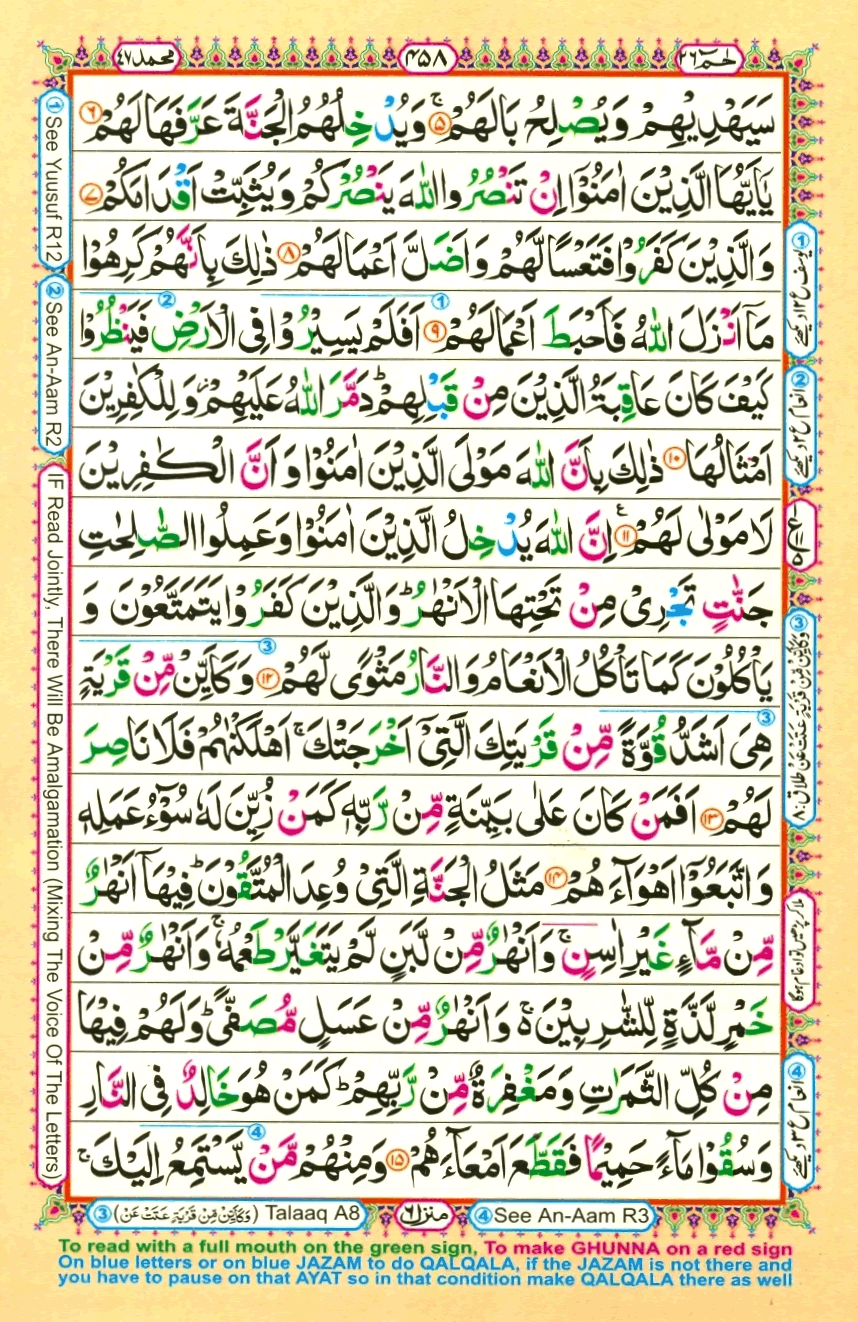 محمد ٤٧
٤٥٨
حٰمٓ ٢٦
سَيَهْدِيْهِمْ وَيُصْلِحُ بَالَهُمْ ۚ‏﴿۵﴾ وَيُدْخِلُهُمُ الْجَنَّةَ عَرَّفَهَا لَهُمْ ﴿۶﴾
يٰۤاَيُّهَا الَّذِيْنَ اٰمَنُوْۤا اِنْ تَنْصُرُوا اللّٰهَ يَنْصُرْكُمْ وَيُثَبِّتْ اَقْدَامَكُمْ ﴿۷﴾
وَالَّذِيْنَ كَفَرُوْا فَتَعْسًا لَّهُمْ وَاَضَلَّ اَعْمَالَهُمْ ﴿۸﴾ ذٰلِكَ بِاَنَّهُمْ كَرِهُوْا
مَاۤ اَنْزَلَ اللّٰهُ فَاَحْبَطَ اَعْمَالَهُمْ ﴿۹﴾ اَفَلَمْ يَسِيْرُوْا فِى الْاَرْضِ فَيَنْظُرُوْا
كَيْفَ كَانَ عَاقِبَةُ الَّذِيْنَ مِنْ قَبْلِهِمْ ؕ دَمَّرَ اللّٰهُ عَلَيْهِمْ ؗ وَلِلْكٰفِرِيْنَ
اَمْثَالُهَا ﴿۱۰﴾ ذٰلِكَ بِاَنَّ اللّٰهَ مَوْلَى الَّذِيْنَ اٰمَنُوْا وَاَنَّ الْكٰفِرِيْنَ
لَا مَوْلٰى لَهُمْ ﴿۱۱﴾ اِنَّ اللّٰهَ يُدْخِلُ الَّذِيْنَ اٰمَنُوْا وَعَمِلُوا الصّٰلِحٰتِ
جَنّٰتٍ تَجْرِىْ مِنْ تَحْتِهَا الْاَنْهٰرُ ؕ وَالَّذِيْنَ كَفَرُوْا يَتَمَتَّعُوْنَ وَ
يَاْكُلُوْنَ كَمَا تَاْكُلُ الْاَنْعَامُ وَالنَّارُ مَثْوًى لَّهُمْ ﴿۱۲﴾ وَكَاَيِّنْ مِّنْ قَرْيَةٍ
هِىَ اَشَدُّ قُوَّةً مِّنْ قَرْيَتِكَ الَّتِىْۤ اَخْرَجَتْكَ ۚ اَهْلَكْنٰهُمْ فَلَا نَاصِرَ
لَهُمْ ﴿۱۳﴾ اَفَمَنْ كَانَ عَلٰى بَيِّنَةٍ مِّنْ رَّبِّهٖ كَمَنْ زُيِّنَ لَهٗ سُوْٓءُ عَمَلِهٖ
وَاتَّبَعُوْۤا اَهْوَآءَهُمْ ﴿۱۴﴾ مَثَلُ الْجَنَّةِ الَّتِىْ وُعِدَ الْمُتَّقُوْنَ ؕ فِيْهَاۤ اَنْهٰرٌ
مِّنْ مَّآءٍ غَيْرِ اٰسِنٍ ۚ وَاَنْهٰرٌ مِّنْ لَّبَنٍ لَّمْ يَتَغَيَّرْ طَعْمُهٗ ۚ وَاَنْهٰرٌ مِّنْ
خَمْرٍ لَّذَّةٍ لِّلشّٰرِبِيْنَ ۬ۚ وَاَنْهٰرٌ مِّنْ عَسَلٍ مُّصَفًّى ؕ وَلَهُمْ فِيْهَا
مِنْ كُلِّ الثَّمَرٰتِ وَمَغْفِرَةٌ مِّنْ رَّبِّهِمْ ؕ كَمَنْ هُوَ خَالِدٌ فِى النَّارِ
وَسُقُوْا مَآءً حَمِيْمًا فَقَطَّعَ اَمْعَآءَهُمْ ﴿۱۵﴾ وَمِنْهُمْ مَّنْ يَّسْتَمِعُ اِلَيْكَ ۚ
① See Yuusuf R12
② See An-Aam R2
IF Read Jointly, There Will Be Amalgamation (Mixing The Voice Of The Letters)
① یوسف ع ۱۲ دیکھئے
② انعام ع ۲ دیکھئے
③ وَكَاَيِّنْ مِّنْ قَرْيَةٍ عَتَتْ عَنْ طلاق ۸
ملا کر پڑھیں تو ادغام ہوگا
④ انعام ع ۳ دیکھئے
③ (وَكَاَيِّنْ مِّنْ قَرْيَةٍ عَتَتْ عَنْ) Talaaq A8
منزل ٦
④ See An-Aam R3
To read with a full mouth on the green sign, To make GHUNNA on a red sign
On blue letters or on blue JAZAM to do QALQALA, if the JAZAM is not there and
you have to pause on that AYAT so in that condition make QALQALA there as well